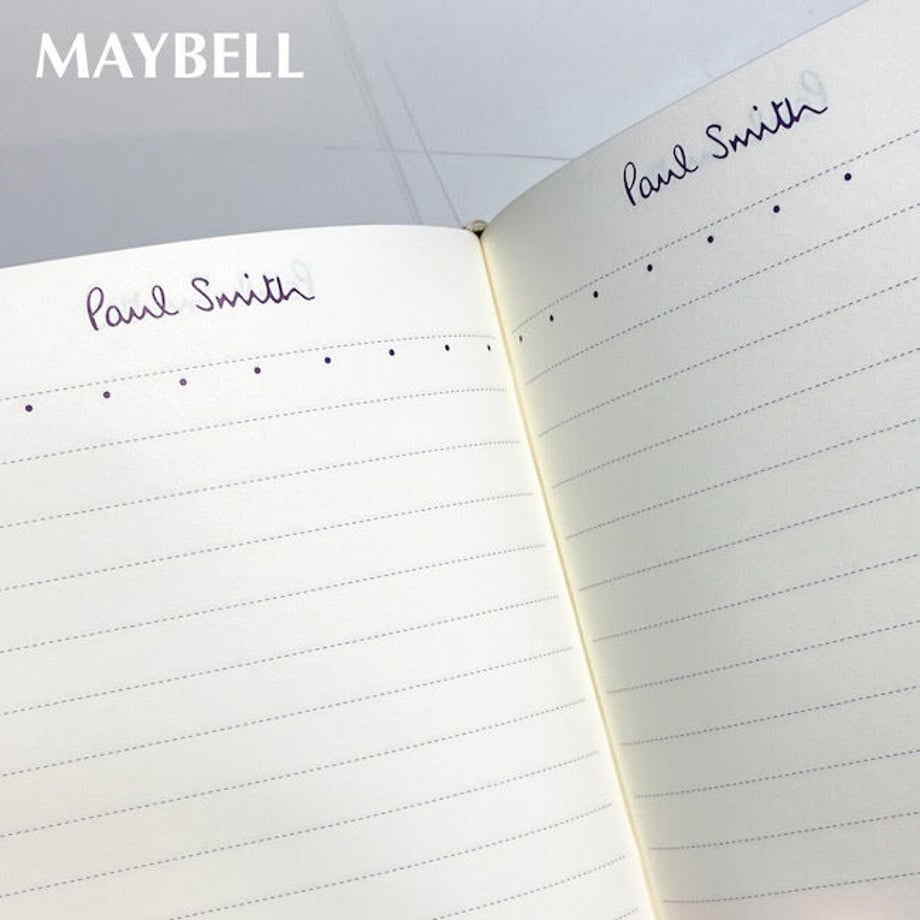 MAYBELL
Paul Smith
Paul Smith